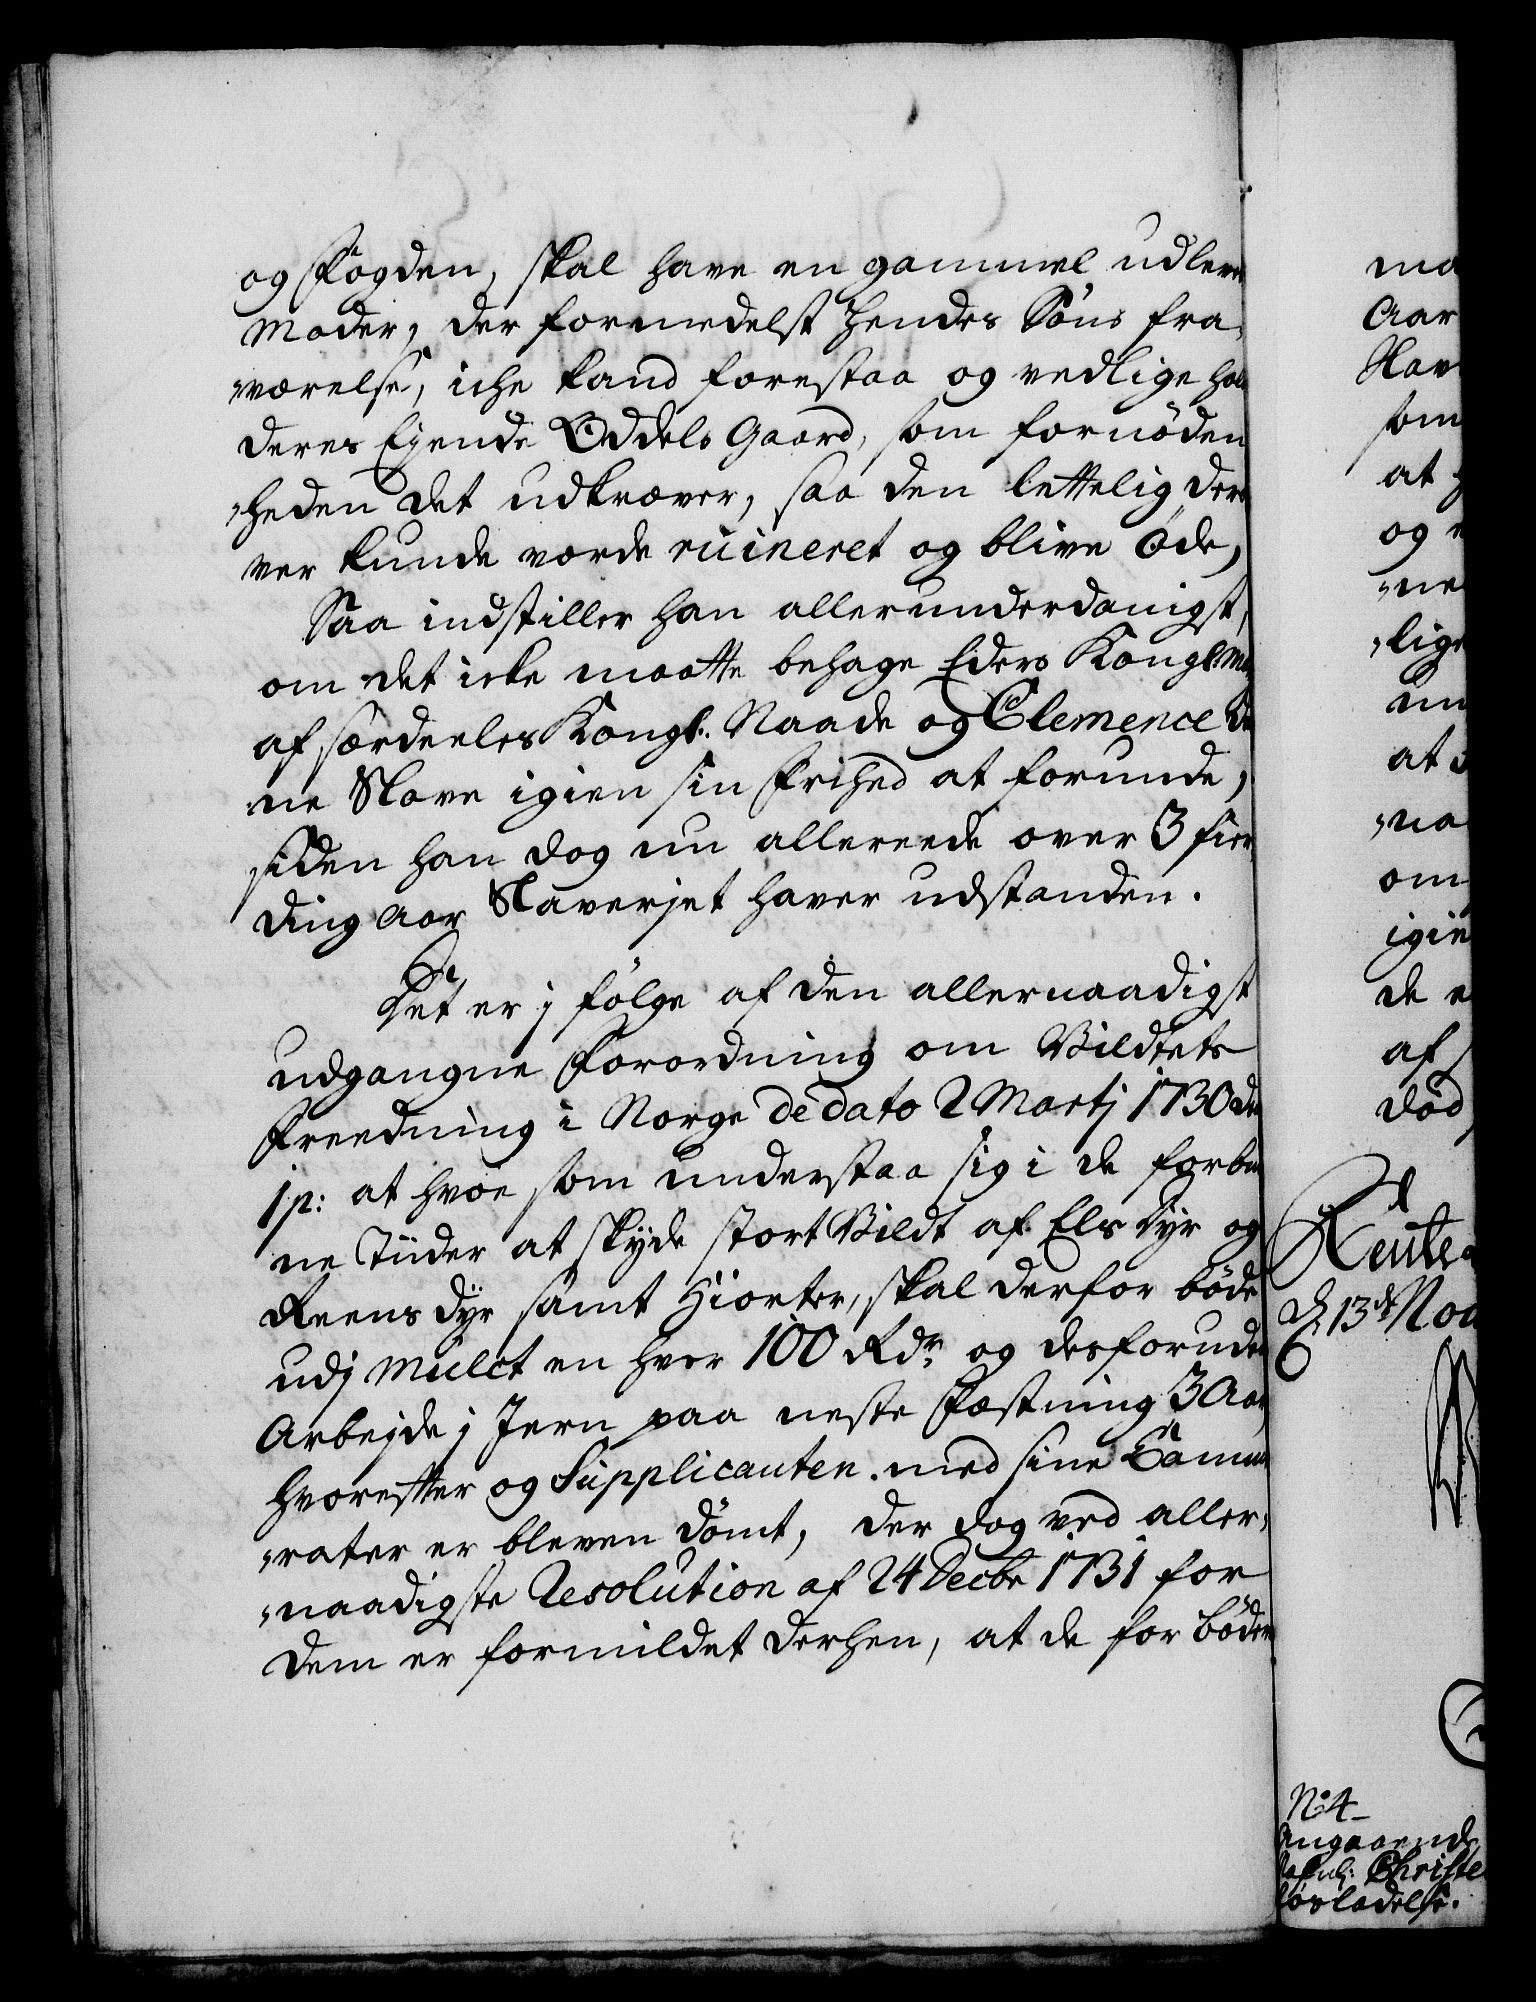 og Fogden, skal have en gammel udlevet
Moder, der formedelst hendes Söns fra-
„værelse, iche kand forestaa og vedlige hol
deres Ejende Oddels Gaard, som fornöden
„heden det udkræver, saa den lettelig der
ver kunde vorde ruineret og blive Öde,
Saa indstiller han allerunderdanigst,
om det icke maatte behage Eders Kongl: May
af særdeeles Kongl. Naade og Clemence De
ne Slave igien sin Frihed at forunde,
siden han dog nu allereede over 3 fier
ding Aar Slaverjet haver udstanden.
Det er j fölge af den allernaadigst
udgangne Forordning om Vildtets
Freedning i Norge de dato 2 Martj 1730 de
1 p: at hvoe som understaa sig i de forbu
ne Tiider at skyde stort Vildt af Els dyr og
Reens dyr samt Hiorter, skal derfor böde
udj Mulct en hver 100 Rdr. og desforuden
Arbejde j Jern paa neste Fæstning 3 Aar,
hvorefter og Supplicanten med sine Camme
„rater er bleven dömt, der dog ved aller-
„naadigste Resolution af 24 Decbr 1731 for
dem er formildet derhen, at de for böder
ma
Aar
Slav
som
at
og
„ne
„lige
un
at
„na
om
igien
de
af
död
Rente
d 13de Nov
No: 4
Angaaende
Christe
lösladelse.